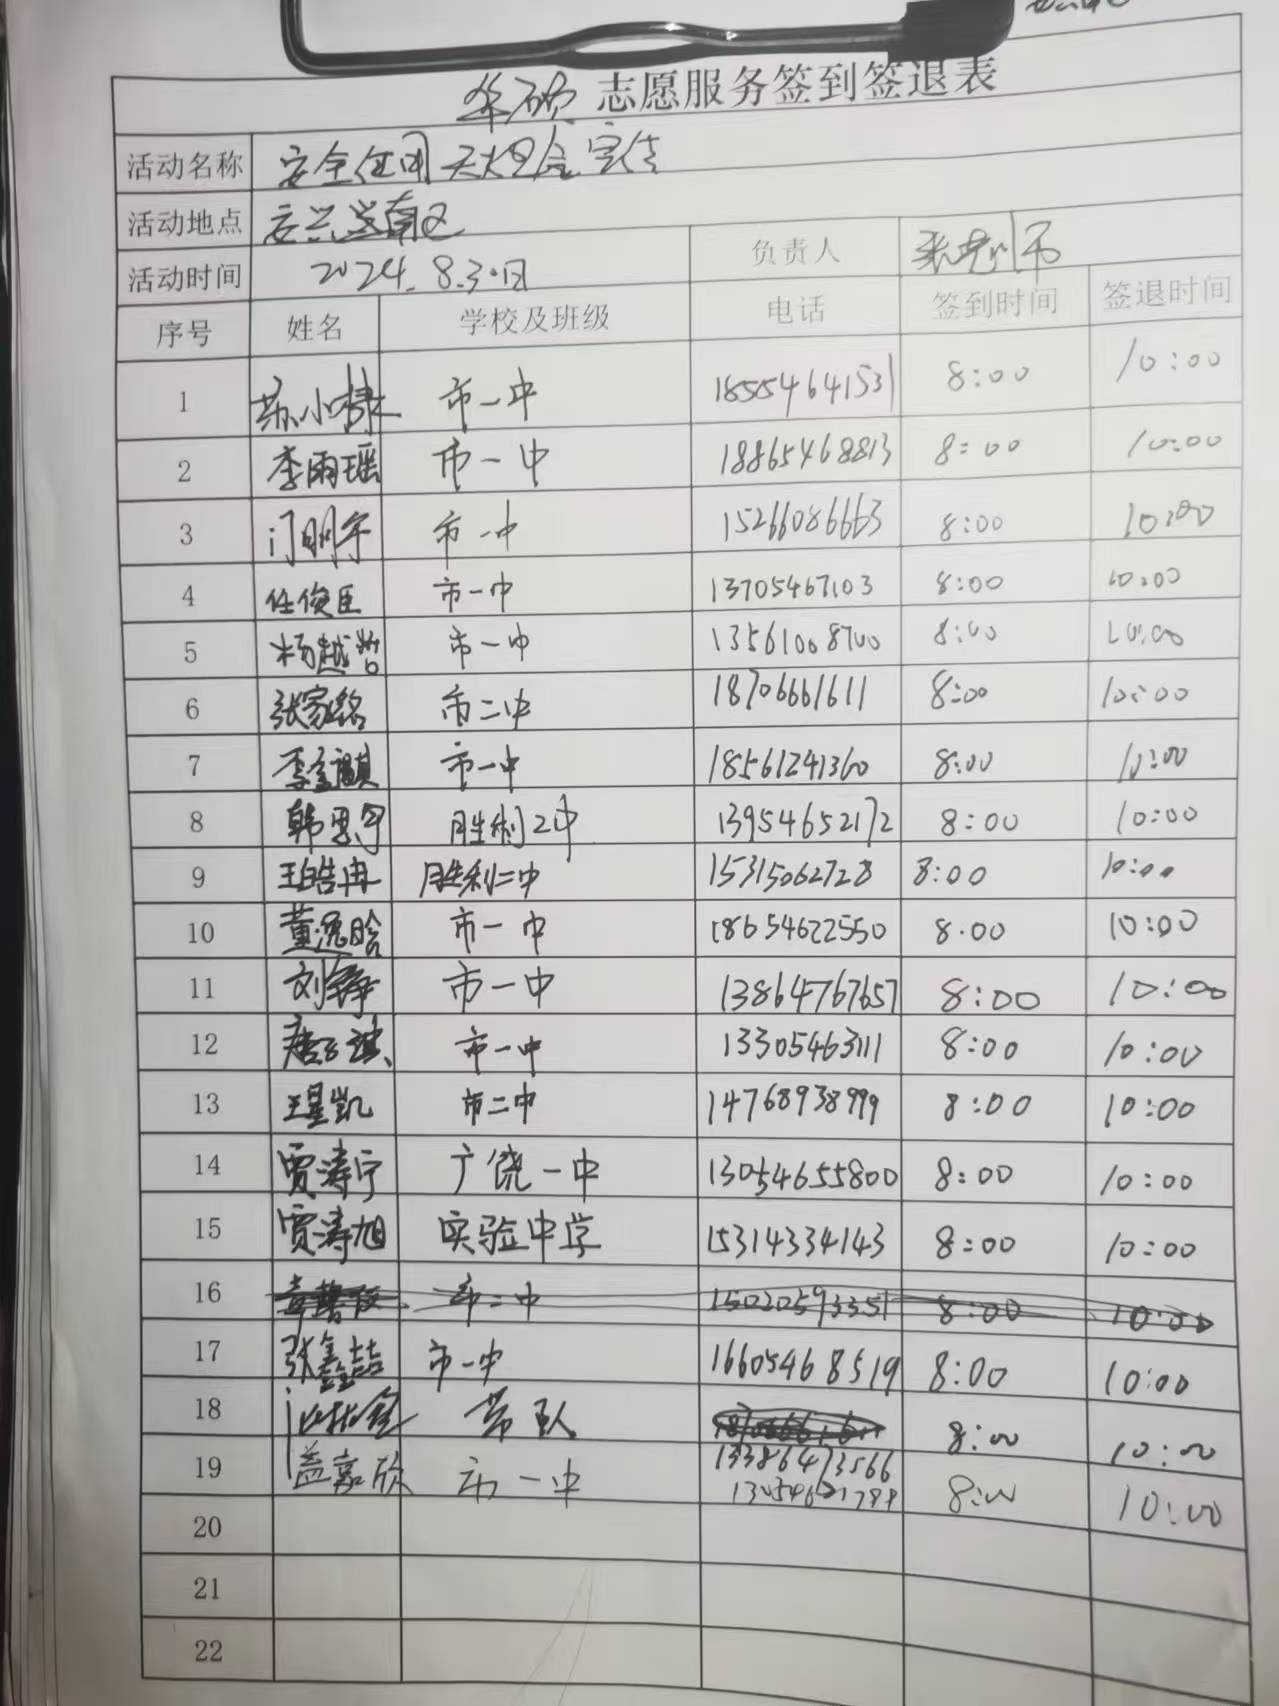 华硕 志愿服务签到签退表
活动名称 安全
活动地点
活动时间 2024.8.30日 负责人
序号 姓名 学校及班级 电话 签到时间 签退时间
1 苏小棣 市一中 18505464153 8:00 10:00
2 李雨瑶 市一中 18865468813 8:00 10:00
3 门明宇 市一中 15266086663 8:00 10:00
4 任俊臣 市一中 13705467103 8:00 10:00
5 杨越哲 市一中 13561008700 8:00 10:00
6 张家铭 市二中 18706661611 8:00 10:00
7 李金颖 市一中 18561241360 8:00 10:00
8 韩思 胜利2中 13954652172 8:00 10:00
9 王皓冉 胜利二中 15315062728 8:00 10:00
10 董逸晗 市一中 18654622550 8:00 10:00
11 刘铮 市一中 13864767657 8:00 10:00
12 市一中 13305463111 8:00 10:00
13 王星凯 市二中 14768938999 8:00 10:00
14 贾涛宁 广饶一中 13054655800 8:00 10:00
15 贾涛旭 实验中学 15314334143 8:00 10:00
16 市二中 15020593351 8:00 10:00
17 张鑫喆 市一中 16605468519 8:00 10:00
18 带队 13386473566 8:00 10:00
19 温嘉欣 市一中 8:00 10:00
20
21
22